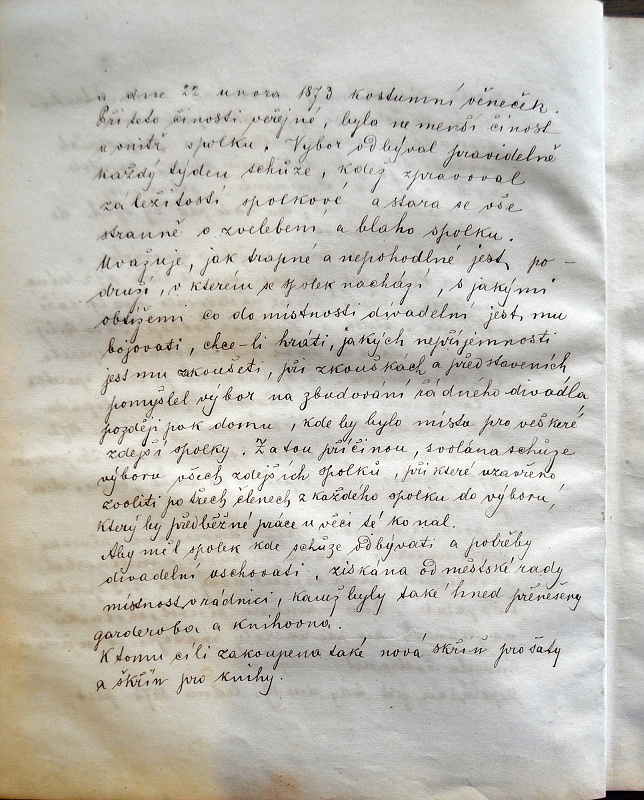 a dne 22 unora 1873 kostumní věneček.
Při teto činosti veřejné, byla ne menši činost
v onitř spolku. Vybor odbýval pravidelně
každý týden schůze, kdež zpravoval
záležitostí spolkové a stara se vše
stranně o zvelebení a blaho spolku.
Uvažuje, jak trapné a nepohodlné jest, po -
druží, v kterém se spolek nachází, s jakými
obtížemi co do místnosti divadelní jest mu
bojovati, chce-li hráti, jakých nepříjemnosti
jest mu zkoušeti, při zkouškách a představeních
pomyslel výbor na zbudování řádného divadla
později pak domu, kde by bylo místa pro veškeré
zdejší spolky. Za tou příčinou, svolána schůze
výboru všech zdejších spolků, při které uzavřeno
zvoliti po třech členech z každého spolku do výboru,
který by předběžné práce u věci té konal.
Aby měl spolek kde schůze odbývati a potřeby
divadelní uschovati, získána od městské rady
místnost v rádnici, kamž byly také hned přenešeny
garderoba a knihovna.
K tomu cíli zakoupena také nová skříň pro šaty
a skříň pro knihy.